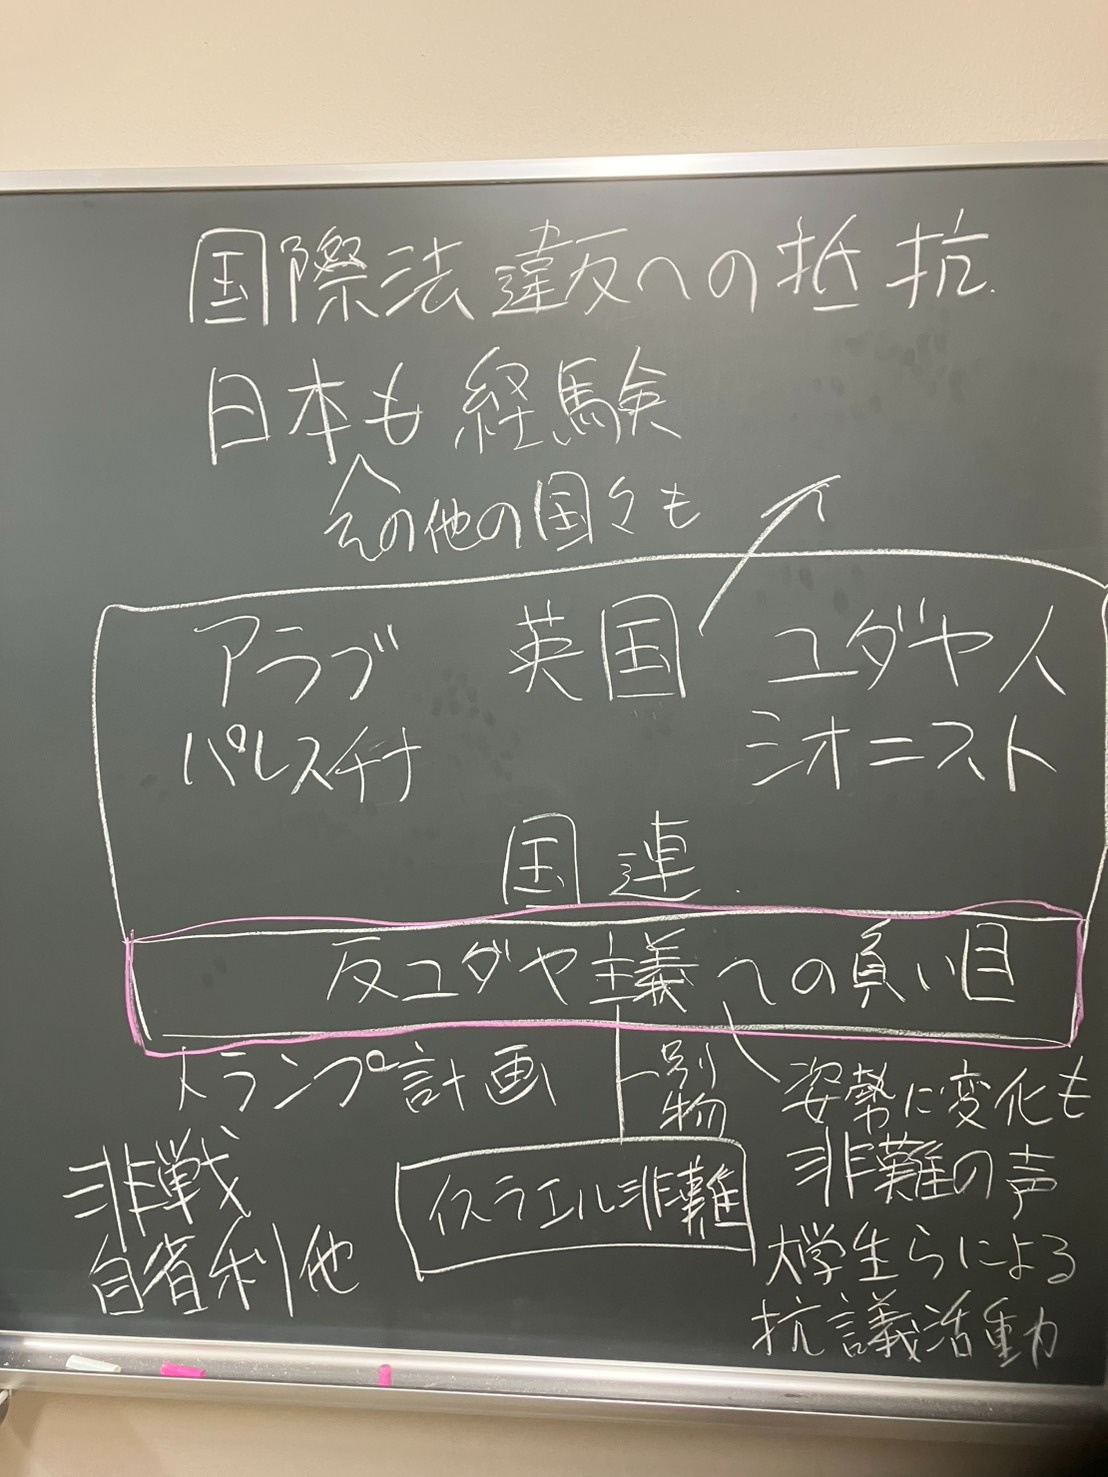 国際法違反への抵抗
日本も経験
その他の国々も
アラブ 英国 ユダヤ人
パレスチナ シオニスト
国連
反ユダヤ主義への負い目
トランプ計画
別物
姿勢に変化も
非難の声
大学生らによる
抗議活動
イスラエル非難
非戦
自省利他